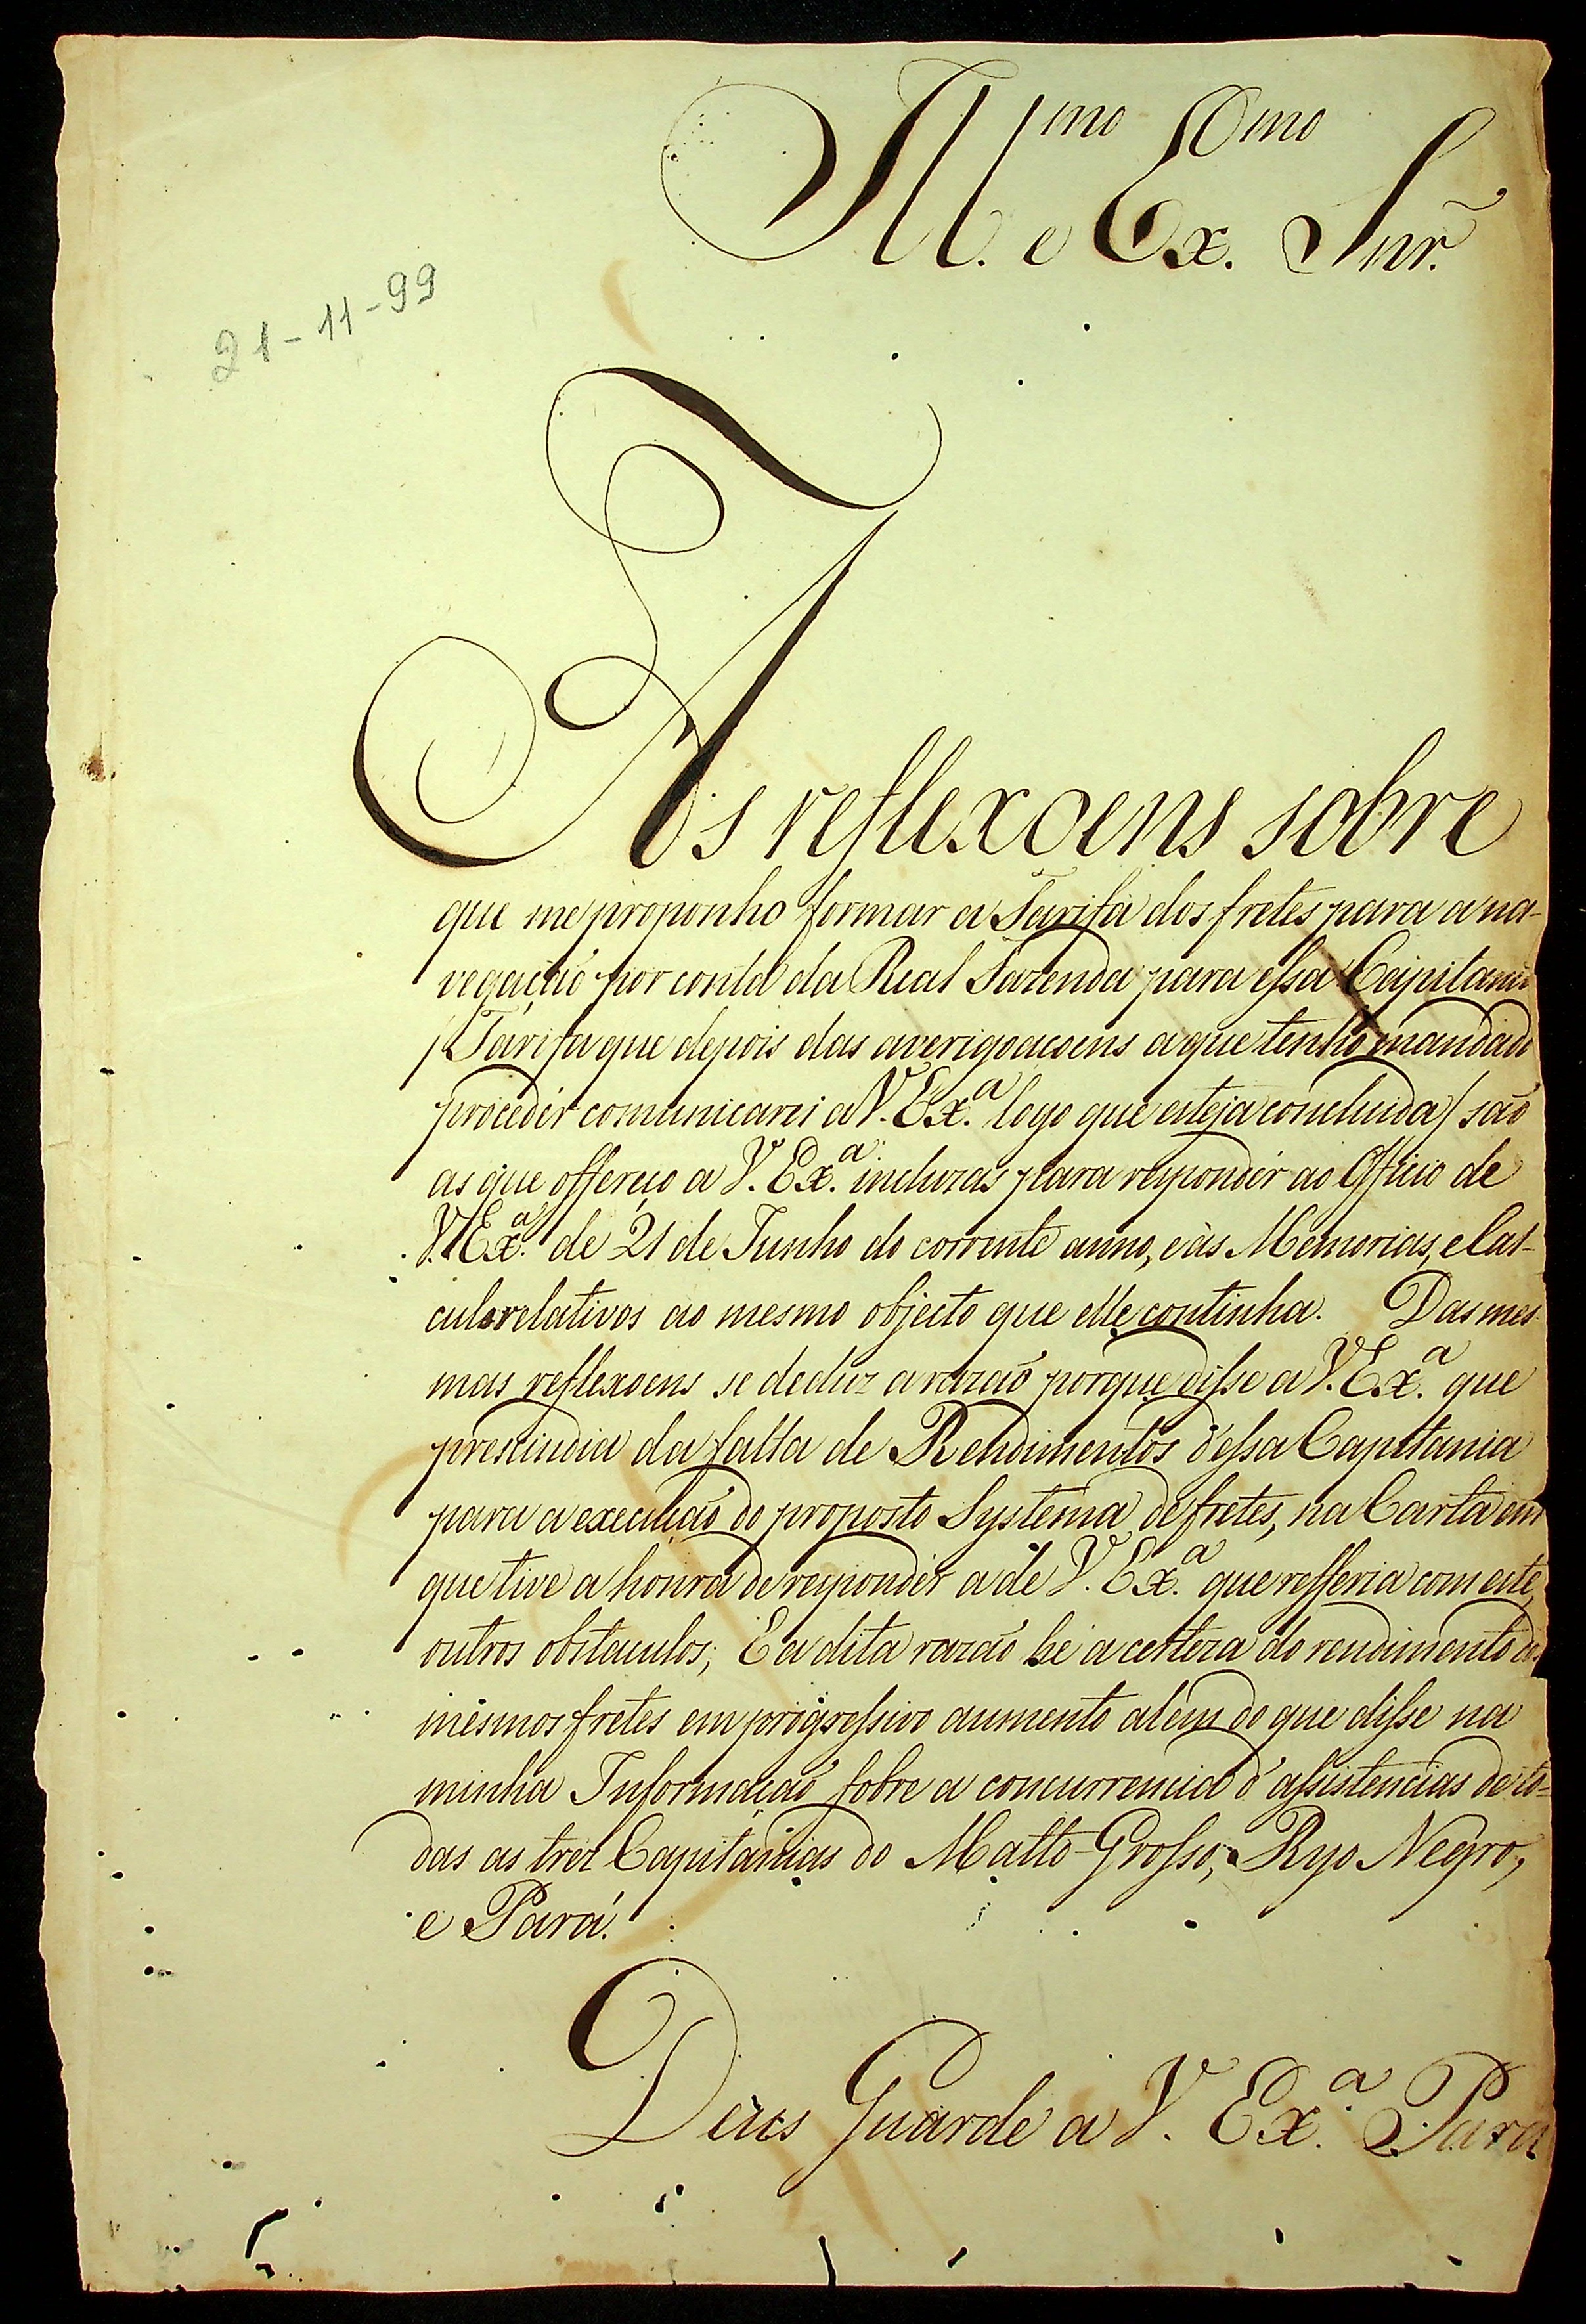 Ill.mo e Ex.mo Snr̃.
21-11-99
As reflexoens sobre
que me proponho formar a Tarifa dos fretes para a na-
vegação por conta da Real Fazenda para essa Capitania
/Tarifa que depois das averigoacoens a que tenho mandado
proceder comunicarei a V. Ex.a logo que esteja concluida/ são
as que offereço a V. Ex.a incluzas para responder ao Officio de
V. Ex.a de 21 de Junho do corrente anno, e às Memorias, e Cal-
culos relativos ao mesmo objecto que elle continha. Das mes-
mas reflexoens se deduz a razaõ porque disse a V. Ex.a que
prescindia da falta de Rendimentos d'essa Capitania
para a execuçaõ do proposto Systema de fretes, na Carta em
que tive a honra de responder a de V. Ex.a que refferia com este,
outros obstaculos; E a dita razaõ he a certeza do rendimento dos
mesmos fretes em progressivo aumento alem do que disse na
minha Informaçaõ sobre a concurrencia d'assistencias de to-
das as trez Capitanias do Matto-Grosso, Ryo Negro,
e Pará.
Deus Guarde a V. Ex.a Pará